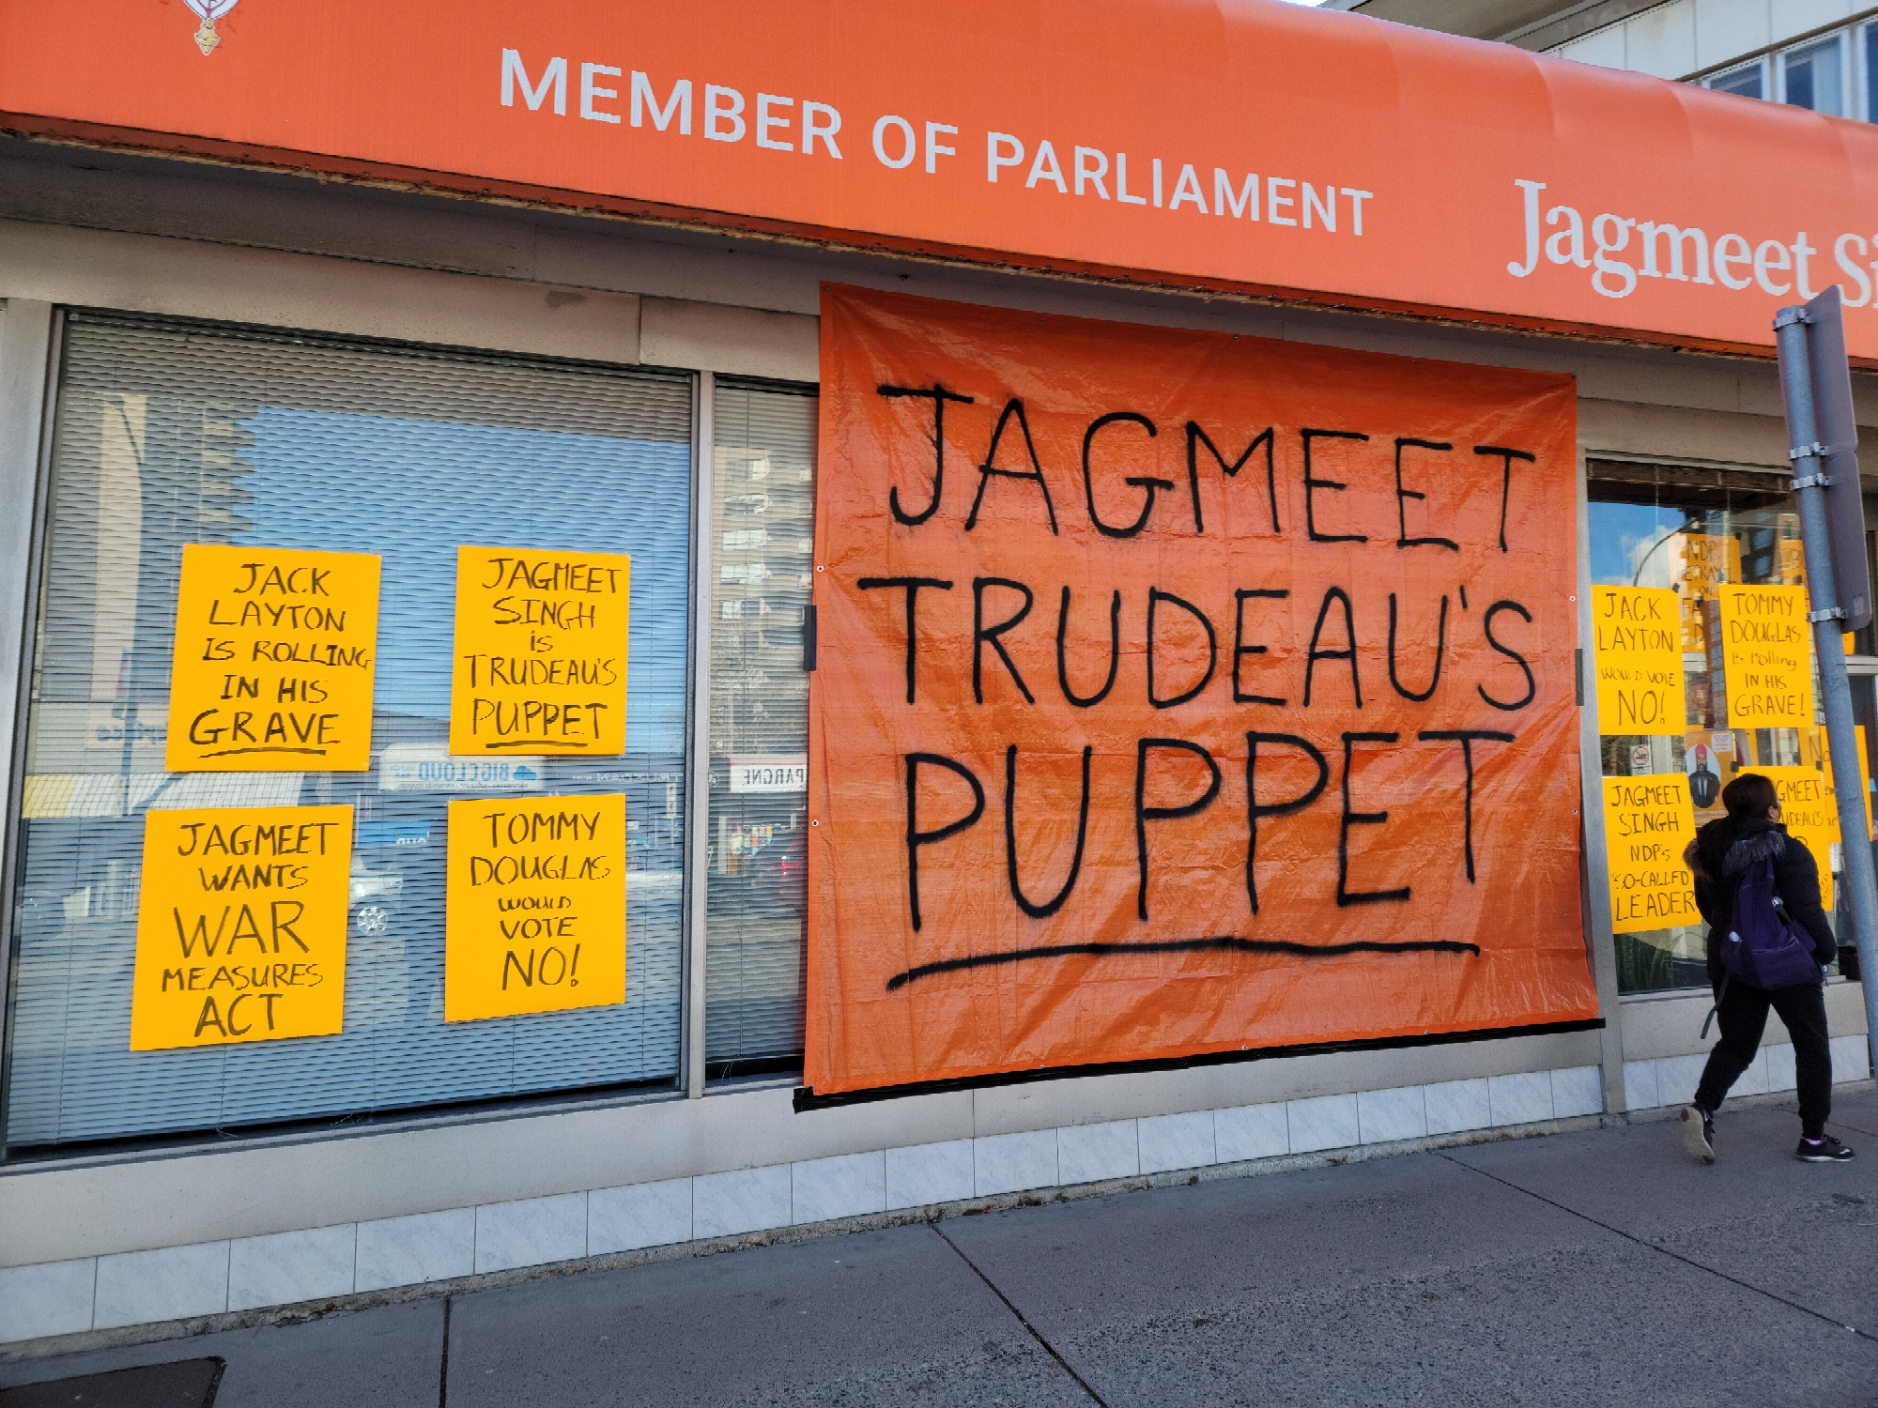 MEMBER OF PARLIAMENT
Jagmeet
JACK
LAYTON
IS ROLLING
IN HIS
GRAVE
JAGMEET
SINGH
iS
TRUDEAU'S
PUPPET
JAGMEET
WANTS
WAR
MEASURES
ACT
TOMMY
DOUGLAS
WOULD
VOTE
NO!
JAGMEET
TRUDEAU'S
PUPPET
JACK
LAYTON
WOULD VOTE
NO!
TOMMY
DOUGLAS
Is Rolling
IN HIS
GRAVE!
JAGMEET
SINGH
NDP'S
SO-CALLED
LEADER
BIGCLOUD
NDP